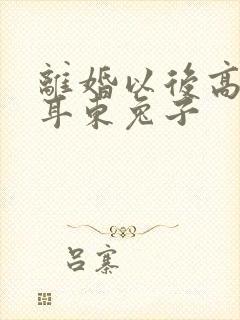 離婚以後高
耳東兔子
呂寨